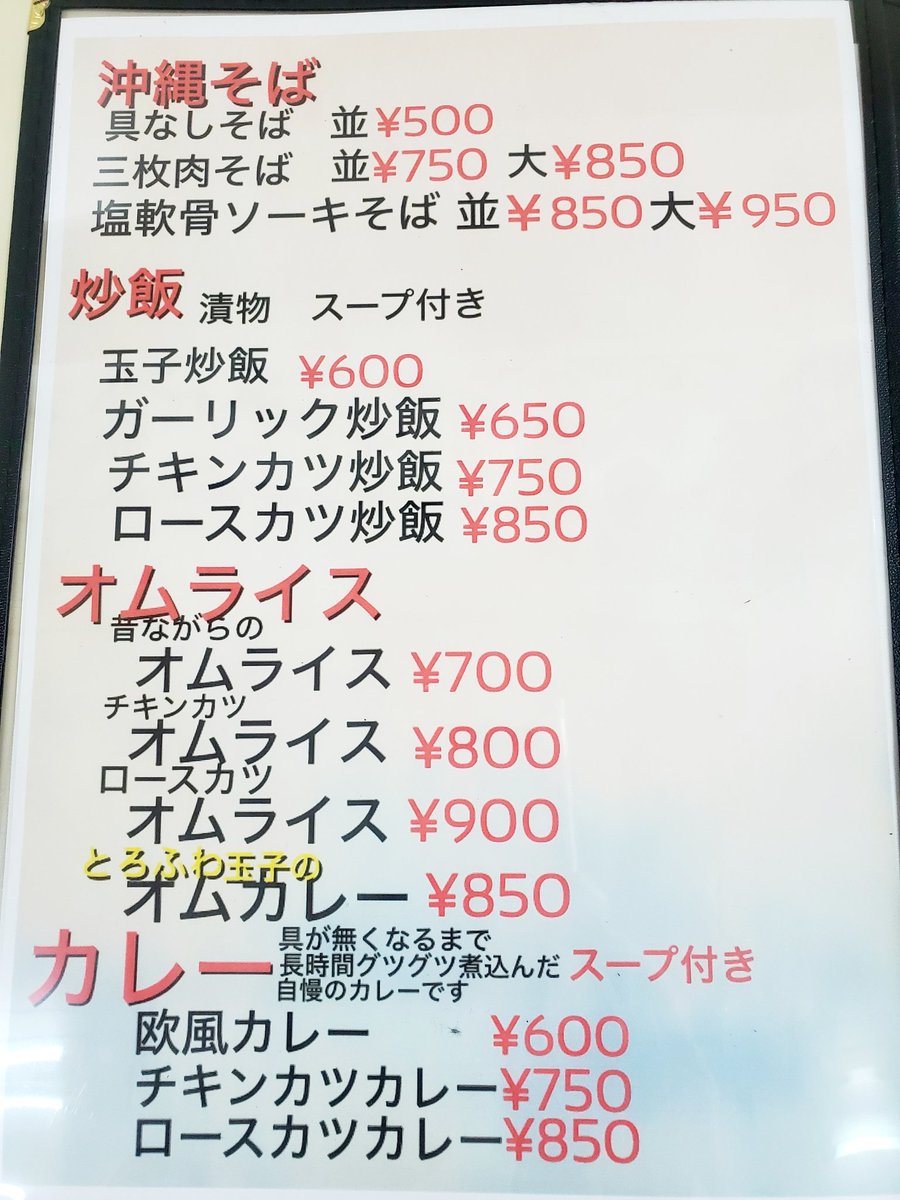 沖縄そば
具なしそば 並¥500
三枚肉そば 並¥750 大¥850
塩軟骨ソーキそば 並¥850 大¥950
炒飯 漬物 スープ付き
玉子炒飯 ¥600
ガーリック炒飯 ¥650
チキンカツ炒飯 ¥750
ロースカツ炒飯 ¥850
オムライス
昔ながらの
オムライス ¥700
チキンカツ
オムライス ¥800
ロースカツ
オムライス ¥900
とろふわ玉子の
オムカレー ¥850
カレー
具が無くなるまで
長時間グツグツ煮込んだ スープ付き
自慢のカレーです
欧風カレー ¥600
チキンカツカレー ¥750
ロースカツカレー ¥850